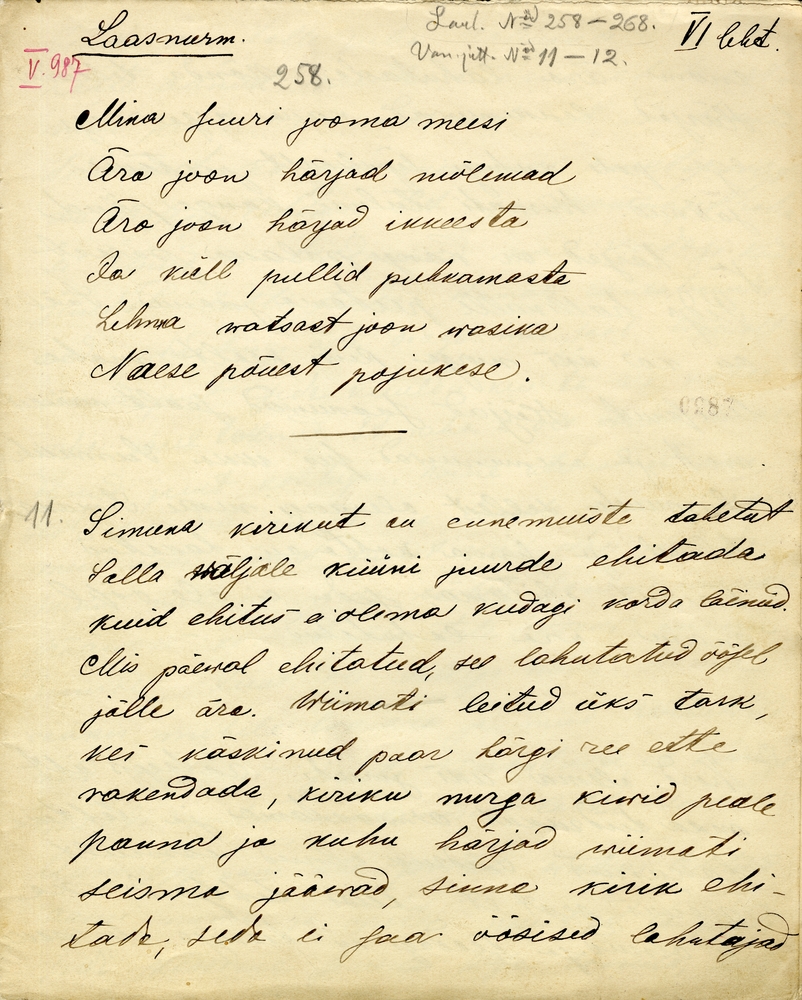 Laasnurm.
Laul. No 258-268.
VI leht.
V.987
Van. jutt. No 11-12.
258.
Mina suuri jooma meesi
Ära joon härjad mõlemad
Ära joon härjad ikkeesta
Ja küll pullid puhkamasta
Lehma watsast joon wasika
Naese põuest pojukese.
11. Simuna kirikut on ennemuiste tahetut
Salla wäljale küüni juurde ehitada
kuid ehitus ei olema kudagi korda läinud.
Mis päewal ehitatud, see lahutatud öösel
jälle ära. Wiimati leitud üks tark,
kes käskinud paar härgi ree ette
rakendada, kiriku nurga kiwid peale
panna ja kuhu härjad wiimati
seisma jääwad, sinna kirik ehi-
tada, seda ei saa öösised lahutajad